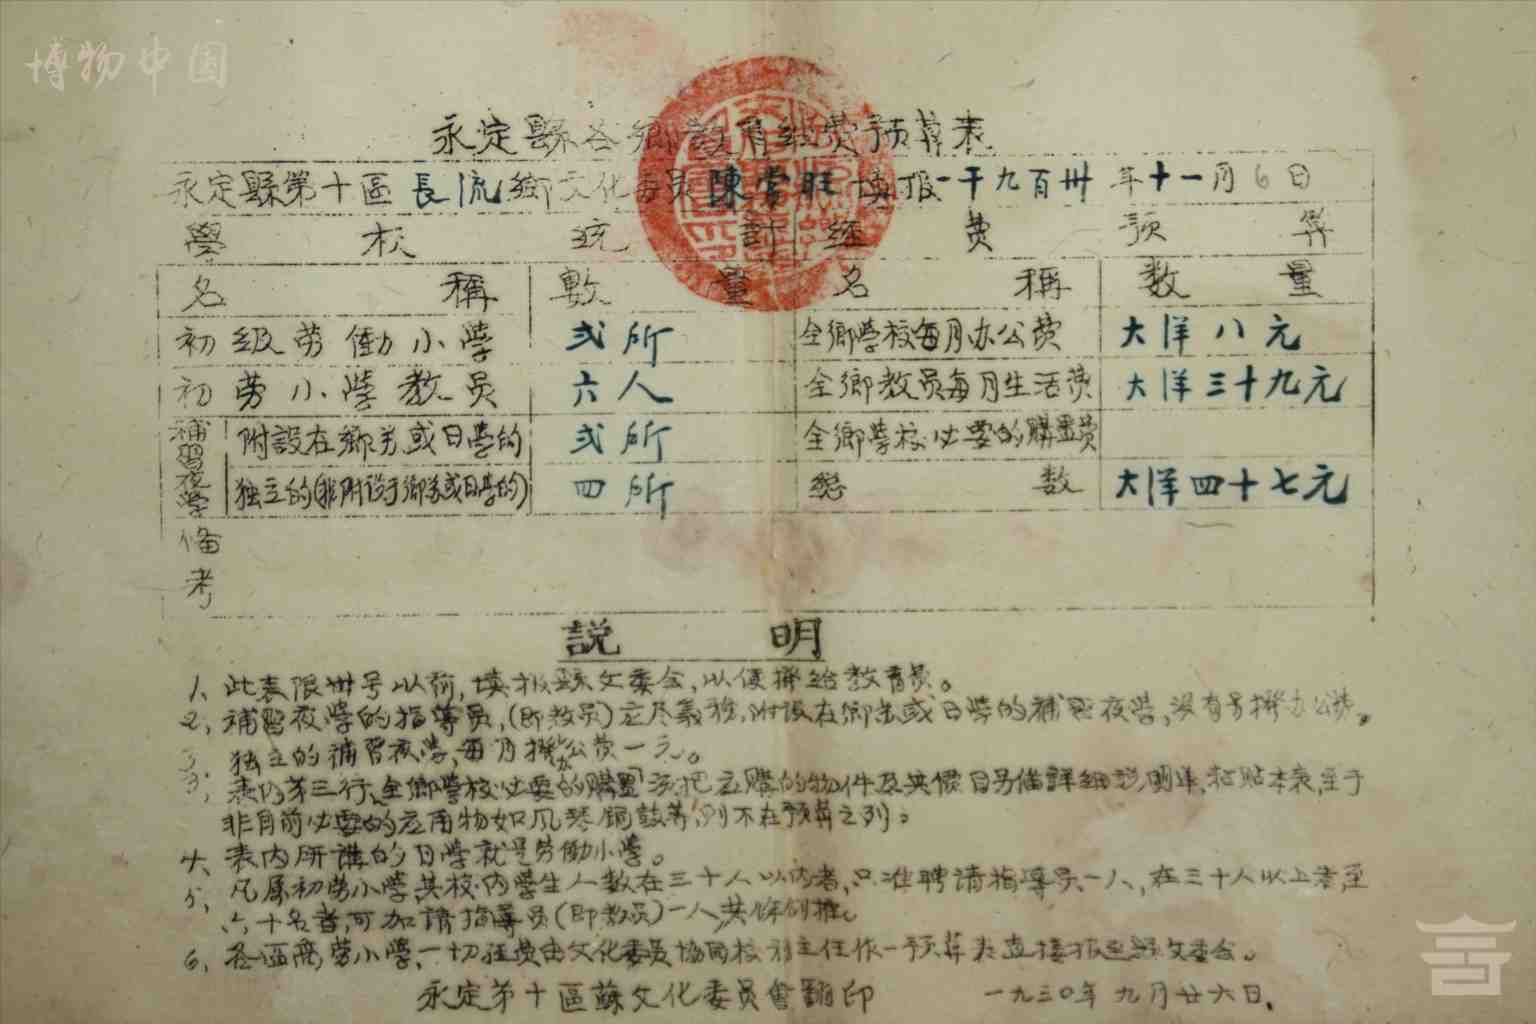 博物中国
永定縣各鄉教育經費預算表
永定縣第十區長流鄉文化委員陳常旺填报一千九百卅年十一月6日
學校統計 經費預算
名稱 數量 名稱 数量
初級劳働小學 弍所 全鄉学校每月办公費 大洋八元
初劳小學教員 六人 全鄉教員每月生活費 大洋三十九元
補習夜学 附設在鄉劳或日學的 弍所 全鄉学校必要的購置費
独立的(非附设于鄉劳或日學的) 四所 總数 大洋四十七元
備考
説明
1、此表限卅号以前,填报縣文委会,以便撥给教育費。
2、補習夜学的指導員,(即教員)立尽義務,附设在鄉劳或日学的補習夜学,没有另撥办公費,
独立的補習夜学,每月撥办公費一元。
3、表内第三行,全鄉學校必要的購置 须把应購的物件及其價目另俻詳細説明單,粘贴本表,至于
非目前必要的应用物如风琴铜鼓等,则不在预算之列。
4、表内所講的日学就是劳働小學。
5、凡属初劳小学其校内学生人数在三十人以内者,只准聘請指導員一人,在三十人以上者,至
六十名者,可加請指導員(即教員)一人,其馀例推。
6、各區高劳小學,一切经費由文化委員協同校 主任作一预算表直接报 縣文委会。
永定第十區蘇文化委員會翻印 一九三〇年九月廿六日.